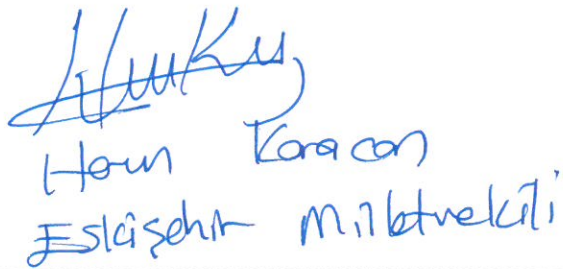 Harun Karacan
Eskişehir Milletvekili